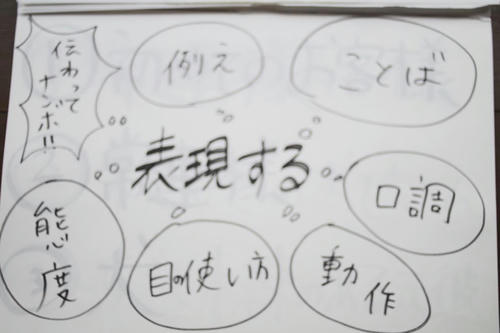 伝わって
ナンボ!!
例え
ことば
表現する
口調
態度
目の使い方
動作